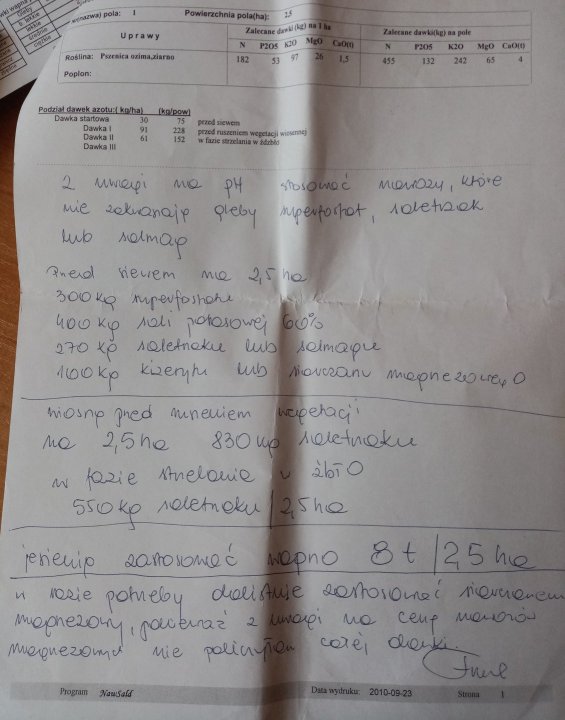 pola: 1 Powierzchnia pola(ha): 2,5
Uprawy
Zalecane dawki(kg) na 1 ha
Zalecane dawki(kg) na pole
N P2O5 K2O MgO CaO(t) N P2O5 K2O MgO CaO(t)
Roślina: Pszenica ozima,ziarno 182 53 97 26 1,5 455 132 242 65 4
Poplon:
Podział dawek azotu:( kg/ha) (kg/pow)
Dawka startowa 30 75 przed siewem
Dawka I 91 228 przed ruszeniem wegetacji wiosennej
Dawka II 61 152 w fazie strzelania w źdźbło
Dawka III
Z uwagi na pH stosować nawozy, które
nie zakwaszają gleby superfosfat, saletrzak
lub salmag
Przed siewem na 2,5 ha
300 kg superfosfatu
400 kg soli potasowej 60%
270 kg saletrzaku lub salmagu
100 kg kizerytu lub siarczanu magnezowego
Wiosną przed ruszeniem wegetacji
na 2,5 ha 830 kg saletrzaku
w fazie strzelania w źdźbło
550 kg saletrzaku / 2,5 ha
jesienią zastosować wapno 8 t / 2,5 ha
w razie potrzeby dolistnie zastosować siarczanem
magnezowy, ponieważ z uwagi na cenę nawozów
nie policzyłam całej dawki.
Program NawSald Data wydruku: 2010-09-23 Strona 1